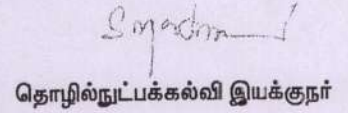 தொழில்நுட்பக்கல்வி இயக்குநர்